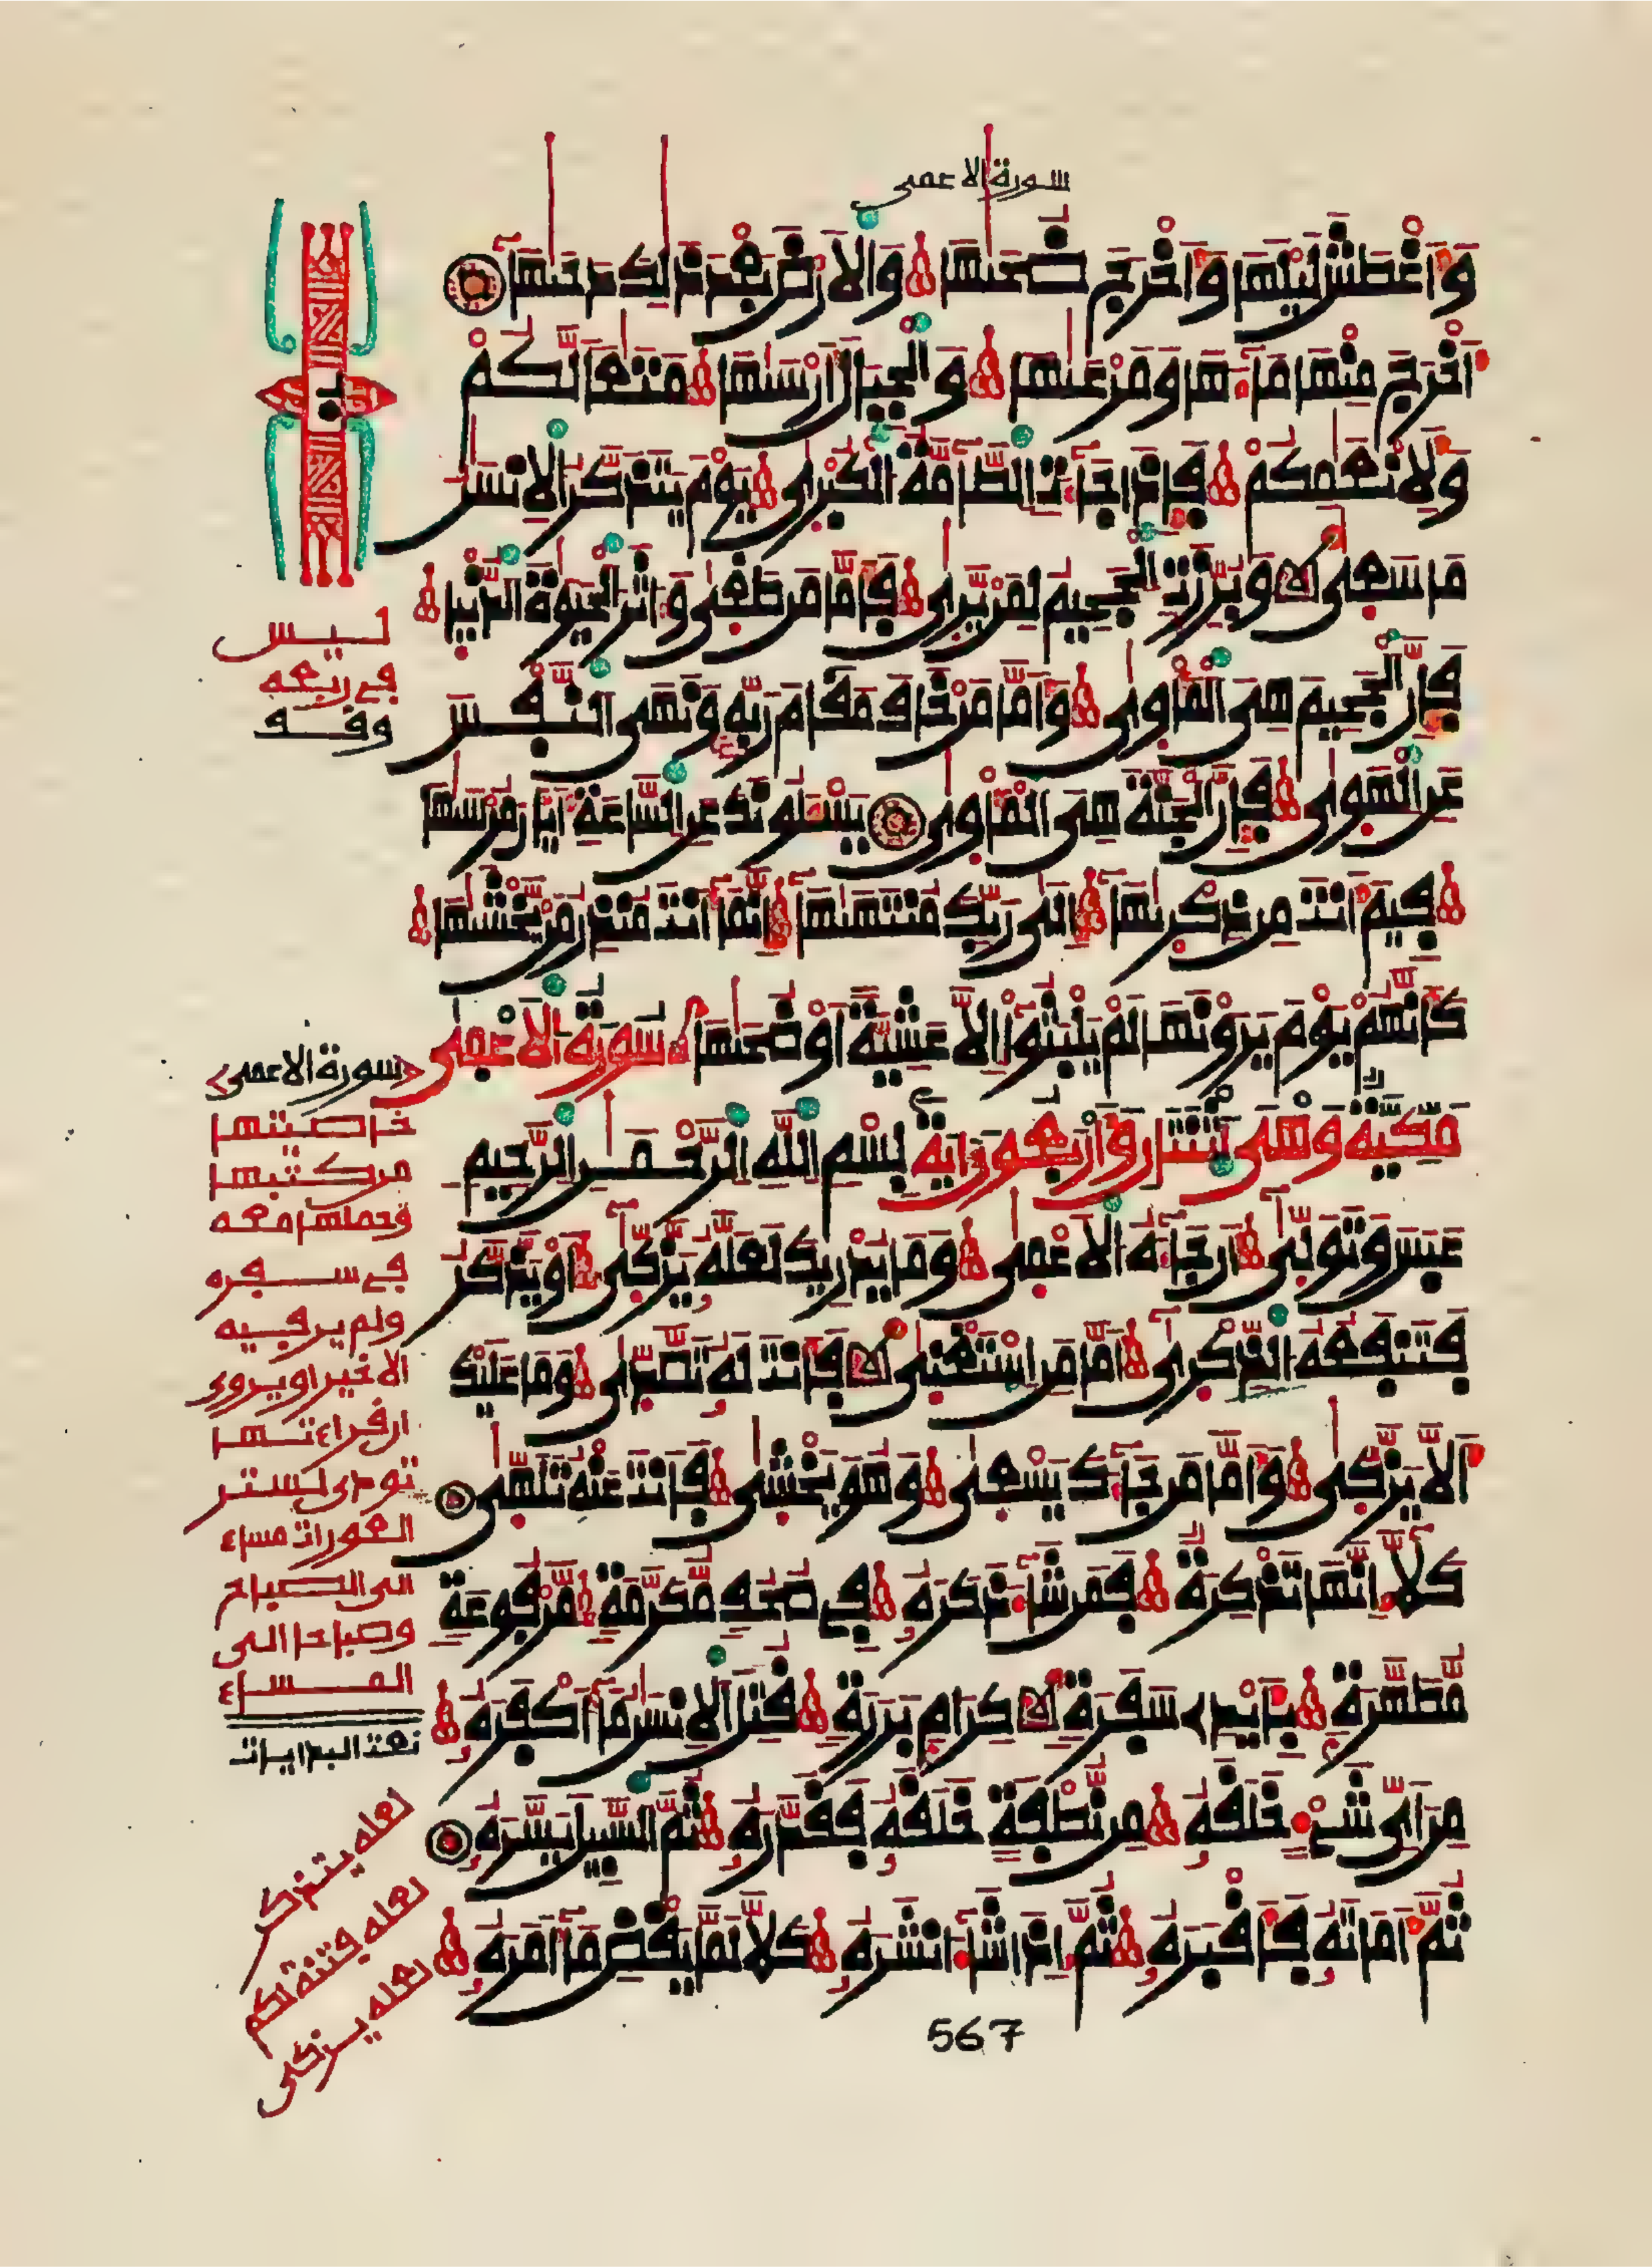 سورة الاعمى
وَأَغْطَشَ لَيْلَهَا وَأَخْرَجَ ضُحَىٰهَا وَالَارْضَ بَعْدَ ذَٰلِكَ دَحَىٰهَا
أَخْرَجَ مِنْهَا مَآءَهَا وَمَرْعَىٰهَا وَالْجِبَالَ أَرْسَىٰهَا مَتَٰعاً لَّكُمْ
وَلِأَنْعَٰمِكُمْ فَإِذَا جَآءَتِ الطَّآمَّةُ الْكُبْرَىٰ يَوْمَ يَتَذَكَّرُ الِانسَٰنُ
مَا سَعَىٰ وَبُرِّزَتِ الْجَحِيمُ لِمَنْ يَّرَىٰ فَأَمَّا مَن طَغَىٰ وَءَاثَرَ الْحَيَوٰةَ الدُّنْيَا
فَإِنَّ الْجَحِيمَ هِيَ الْمَأْوَىٰ وَأَمَّا مَنْ خَافَ مَقَامَ رَبِّهِ وَنَهَى النَّفْسَ
عَنِ الْهَوَىٰ فَإِنَّ الْجَنَّةَ هِيَ الْمَأْوَىٰ يَسْـَٔلُونَكَ عَنِ السَّاعَةِ أَيَّانَ مُرْسَىٰهَا
فِيمَ أَنتَ مِن ذِكْرَىٰهَا إِلَىٰ رَبِّكَ مُنتَهَىٰهَا إِنَّمَا أَنتَ مُنذِرُ مَنْ يَّخْشَىٰهَا
كَأَنَّهُمْ يَوْمَ يَرَوْنَهَا لَمْ يَلْبَثُوا إِلَّا عَشِيَّةً أَوْ ضُحَىٰهَا سُورَةُ الَاعْمَىٰ
مَكِّيَّةٌ وَهِيَ اثْنَتَانِ وَأَرْبَعُونَ ءَايَةً بِسْمِ اللَّهِ الرَّحْمَٰنِ الرَّحِيمِ
عَبَسَ وَتَوَلَّىٰ أَن جَآءَهُ الَاعْمَىٰ وَمَا يُدْرِيكَ لَعَلَّهُ يَزَّكَّىٰ أَوْ يَذَّكَّرُ
فَتَنفَعُهُ الذِّكْرَىٰ أَمَّا مَنِ اسْتَغْنَىٰ فَأَنتَ لَهُ تَصَّدَّىٰ وَمَا عَلَيْكَ
أَلَّا يَزَّكَّىٰ وَأَمَّا مَن جَآءَكَ يَسْعَىٰ وَهُوَ يَخْشَىٰ فَأَنتَ عَنْهُ تَلَهَّىٰ
كَلَّا إِنَّهَا تَذْكِرَةٌ فَمَن شَآءَ ذَكَرَهُ فِي صُحُفٍ مُّكَرَّمَةٍ مَّرْفُوعَةٍ
مُّطَهَّرَةٍ بِأَيْدِي سَفَرَةٍ كِرَامٍ بَرَرَةٍ قُتِلَ الِانسَٰنُ مَا أَكْفَرَهُ
مِنْ أَيِّ شَيْءٍ خَلَقَهُ مِن نُّطْفَةٍ خَلَقَهُ فَقَدَّرَهُ ثُمَّ السَّبِيلَ يَسَّرَهُ
ثُمَّ أَمَاتَهُ فَأَقْبَرَهُ ثُمَّ إِذَا شَآءَ انشَرَهُ كَلَّا لَمَّا يَقْضِ مَا أَمَرَهُ
ليس
في ربعه
وقف
سورة الاعمى
خاصيتها
من كتبها
وحملها معه
في سفره
ولم ير فيه
الا خير او يروى
ان قراءتها
تودى لستر
العورات مساء
الى الصباح
وصباحا الى
المساء
نعت البدايات
لعله يتذكر
لعله فتنة لكم
لعله يزكى
567